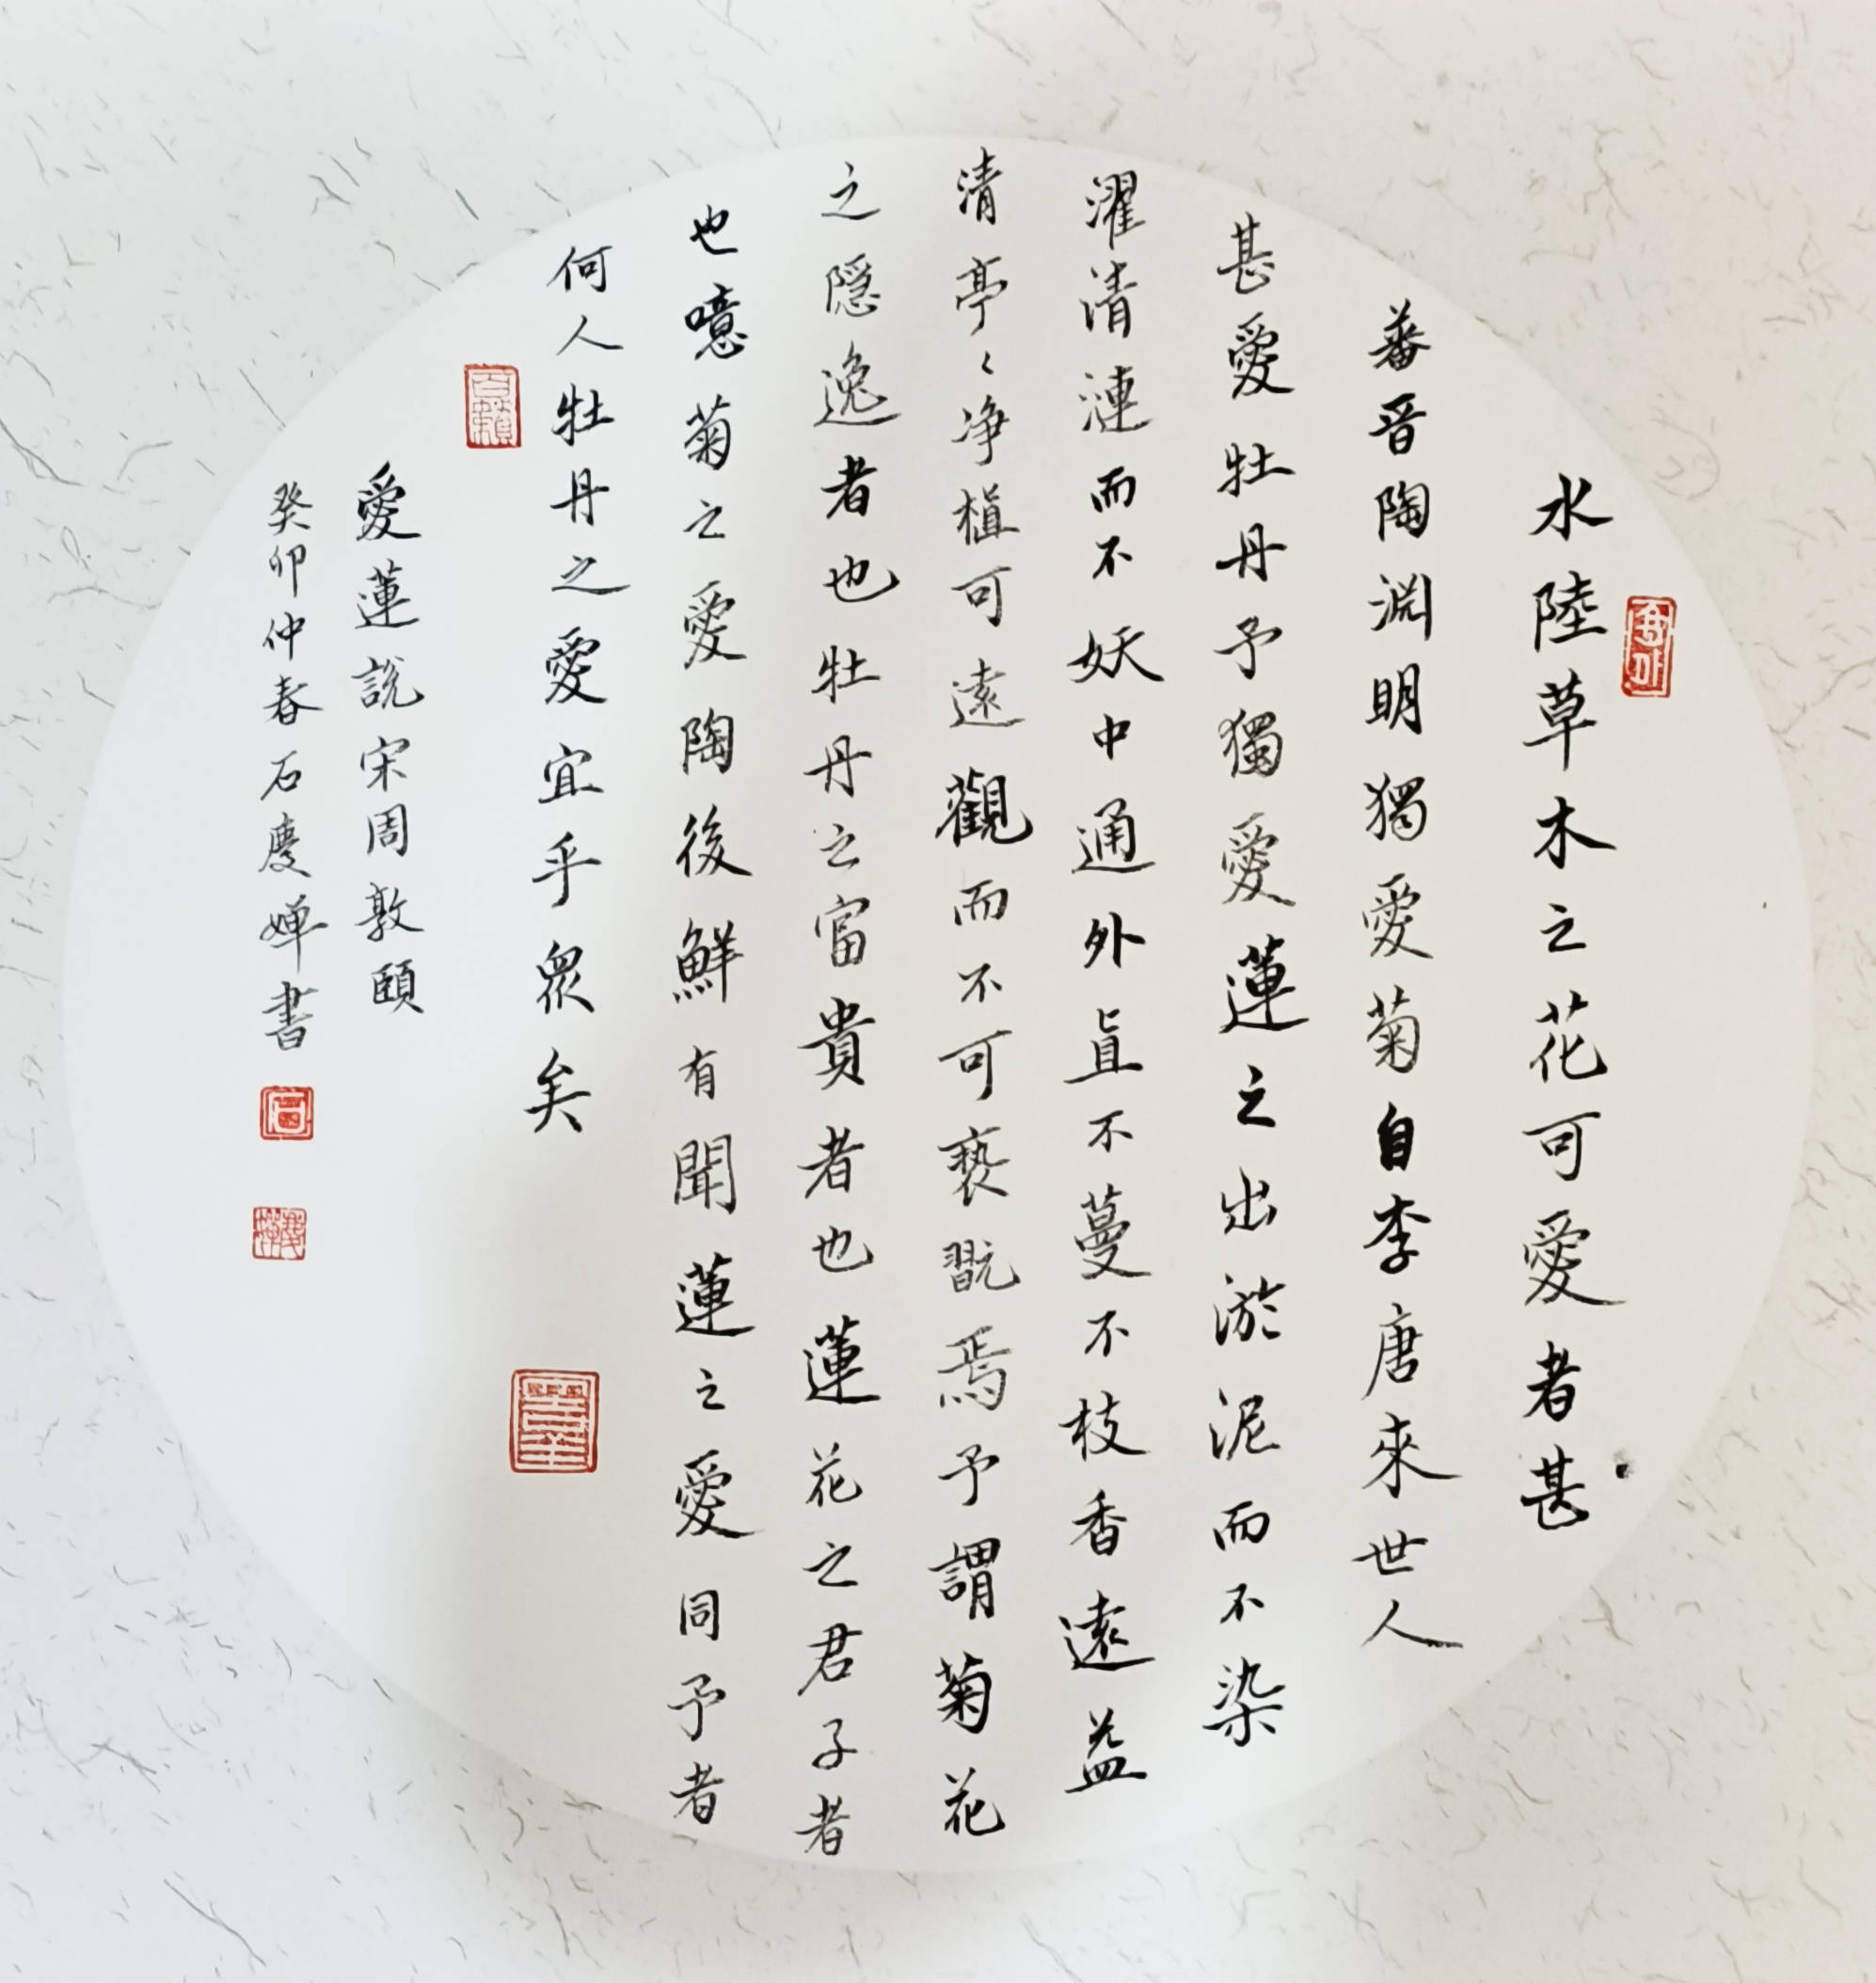 水陸草木之花可愛者甚
蕃晋陶淵明獨愛菊自李唐來世人
甚愛牡丹予獨愛蓮之出淤泥而不染
濯清漣而不妖中通外直不蔓不枝香遠益
清亭々净植可遠觀而不可亵翫焉予謂菊花
之隱逸者也牡丹之富貴者也蓮花之君子者
也噫菊之愛陶後鮮有聞蓮之愛同予者
何人牡丹之愛宜乎眾矣
愛蓮說宋周敦頤
癸卯仲春石慶嬋書